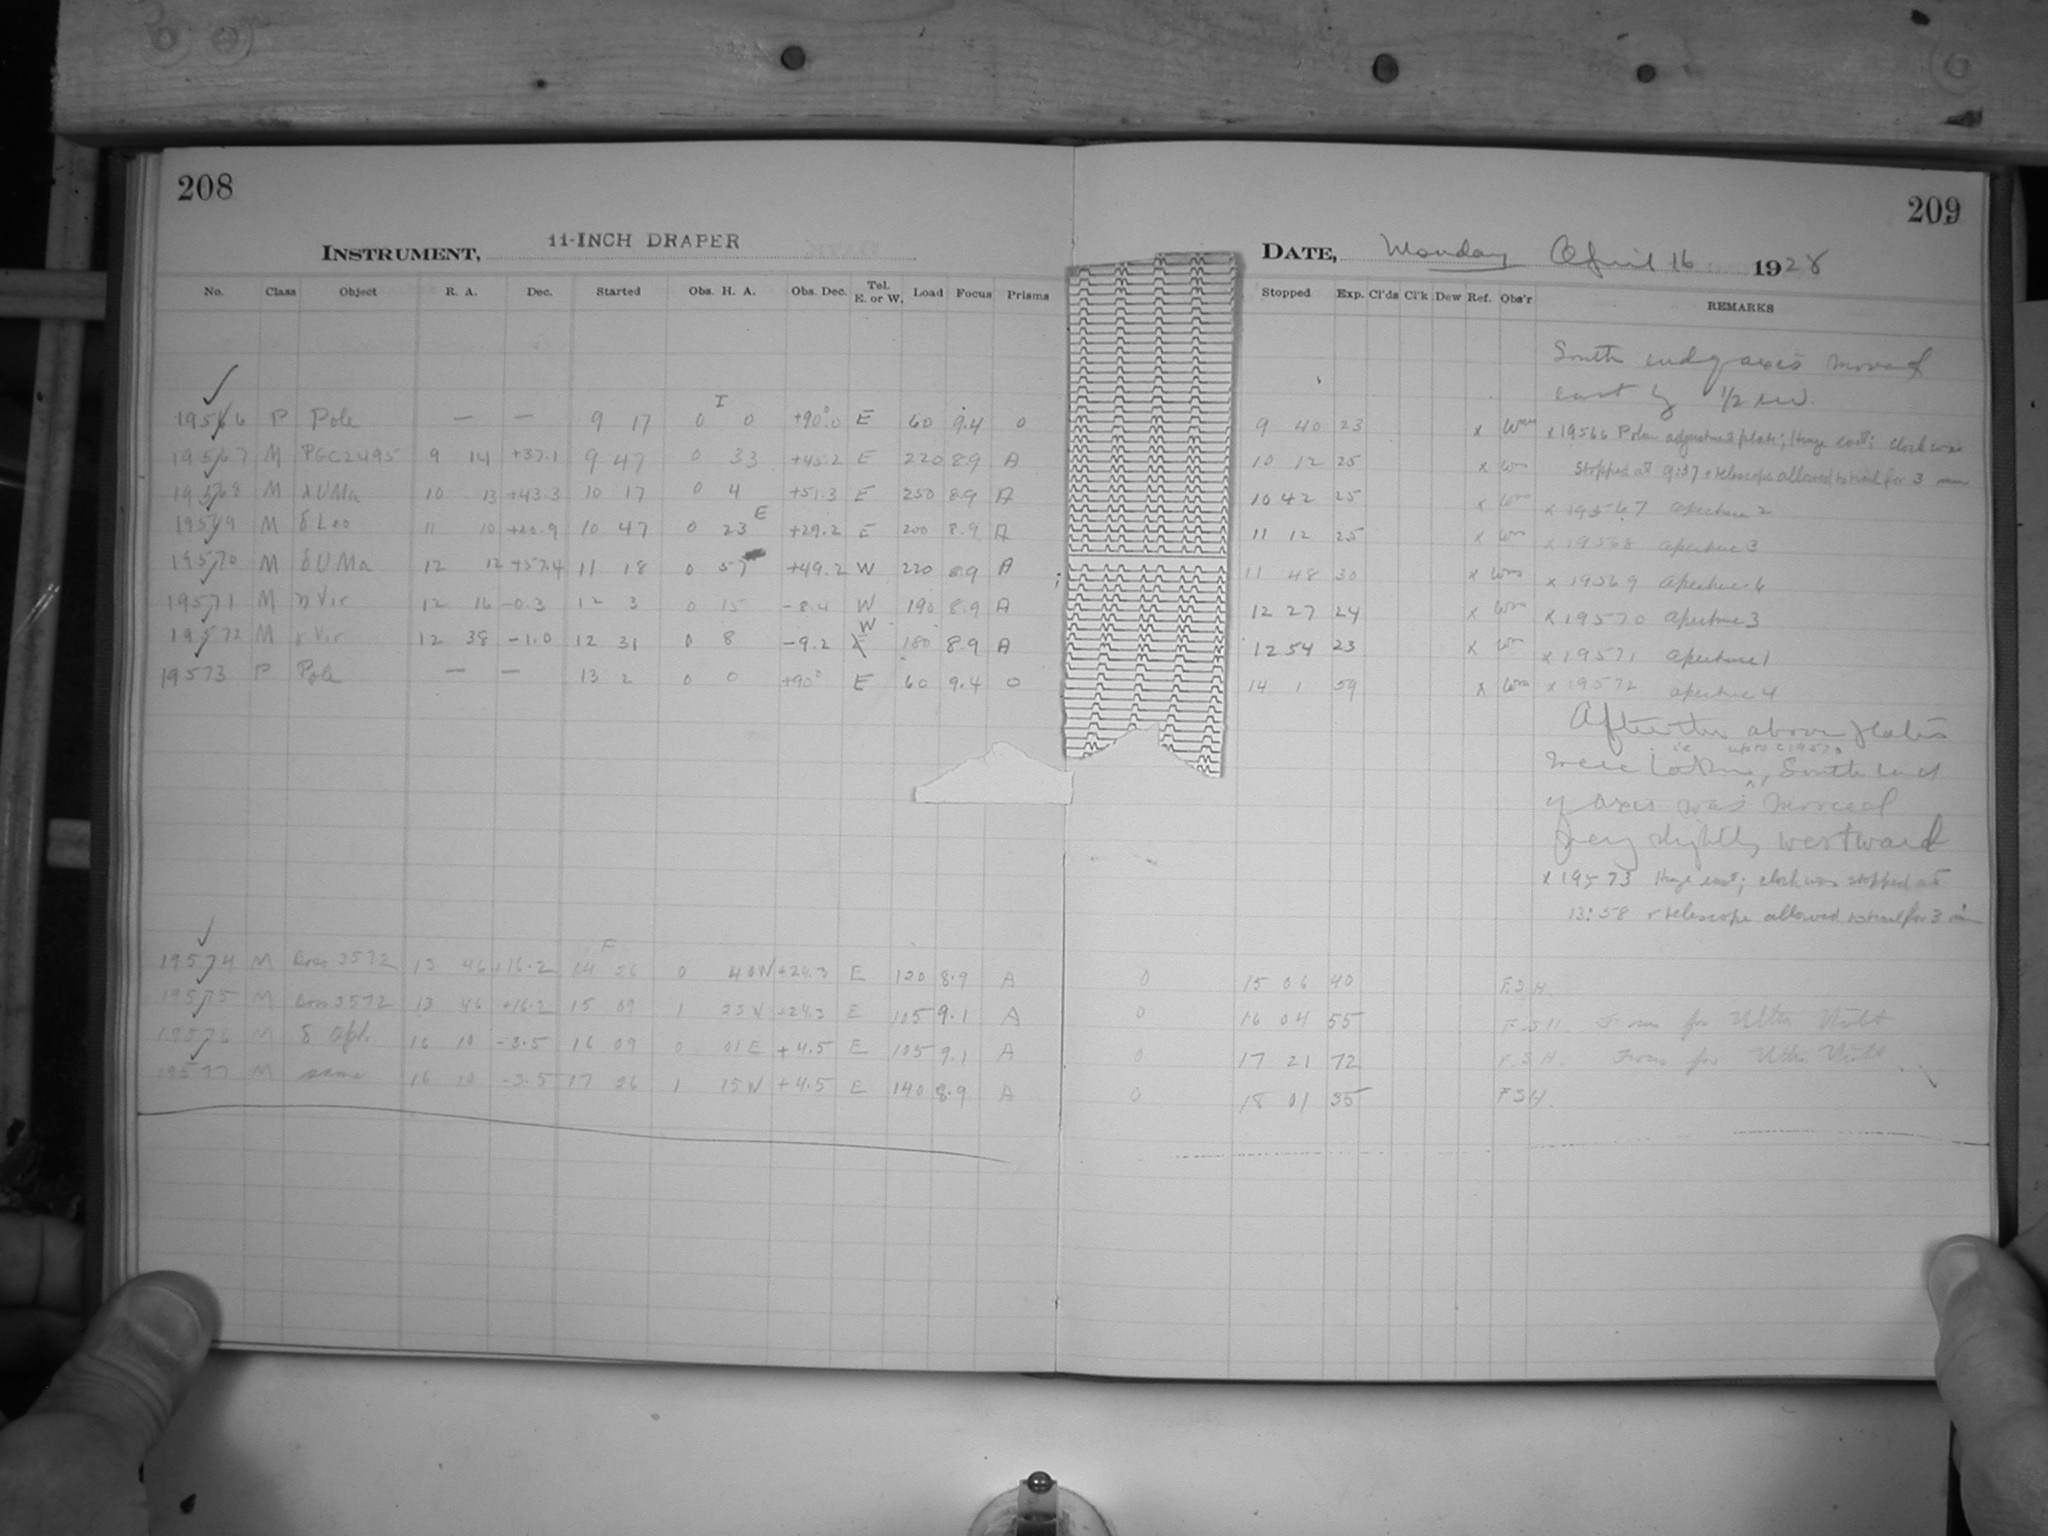 208
209
INSTRUMENT, 11-INCH DRAPER
DATE, Monday April 16 1928
No. Class Object R. A. Dec. Started Obs. H. A. Obs. Dec. Tel. E. or W. Load Focus Prisms
Stopped Exp. Cl'ds Cl'k Dew Ref. Obs'r REMARKS
South end of axis moved
east by 1/2 rev.
19566 P Pole — — 9 17 0 0 +90°.0 E 60 9.4 0 9 40 23 x x 19566 Polar adjustment plate; Hinge east; clock was
19567 M PGC2495 9 14 +37.1 9 47 0 33 +45.2 E 220 8.9 A 10 12 25 x stopped at 9:37 + telescope allowed to trail for 3 min
19568 M λ UMa 10 13 +43.3 10 17 0 4 +51.3 E 250 8.9 A 10 42 25 x x 19567 aperture 2
19569 M δ Leo 11 10 +20.9 10 47 0 23 E +29.2 E 200 8.9 A 11 12 25 x x 19568 aperture 3
19570 M δ UMa 12 12 +57.4 11 18 0 57 +49.2 W 220 8.9 A 11 48 30 x x 19569 aperture 6
19571 M η Vir 12 16 -0.3 12 3 0 15 -8.4 W 190 8.9 A 12 27 24 x x 19570 aperture 3
19572 M γ Vir 12 38 -1.0 12 31 0 8 -9.2 W 180 8.9 A 12 54 23 x x 19571 aperture 1
19573 P Pole — — 13 2 0 0 +90° E 60 9.4 0 14 1 59 x x 19572 aperture 4
After the above plates
were taken, South end
of axis was moved
very slightly westward
x 19573 Hinge east; clock was stopped at
13:58 + telescope allowed to trail for 3 min
19574 M Boss 3572 13 46 +16.2 14 26 0 40W +24.3 E 120 8.9 A 0 15 06 40 F.S.H.
19575 M Boss 3572 13 46 +16.2 15 09 1 25W +24.3 E 105 9.1 A 0 16 04 55 F.S.H. Focus for Ultra Violet
19576 M δ Oph. 16 10 -3.5 16 09 0 01E +4.5 E 105 9.1 A 0 17 21 72 F.S.H. Focus for Ultra Violet
19577 M same 16 10 -3.5 17 26 1 15W +4.5 E 140 8.9 A 0 18 01 35 F.S.H.